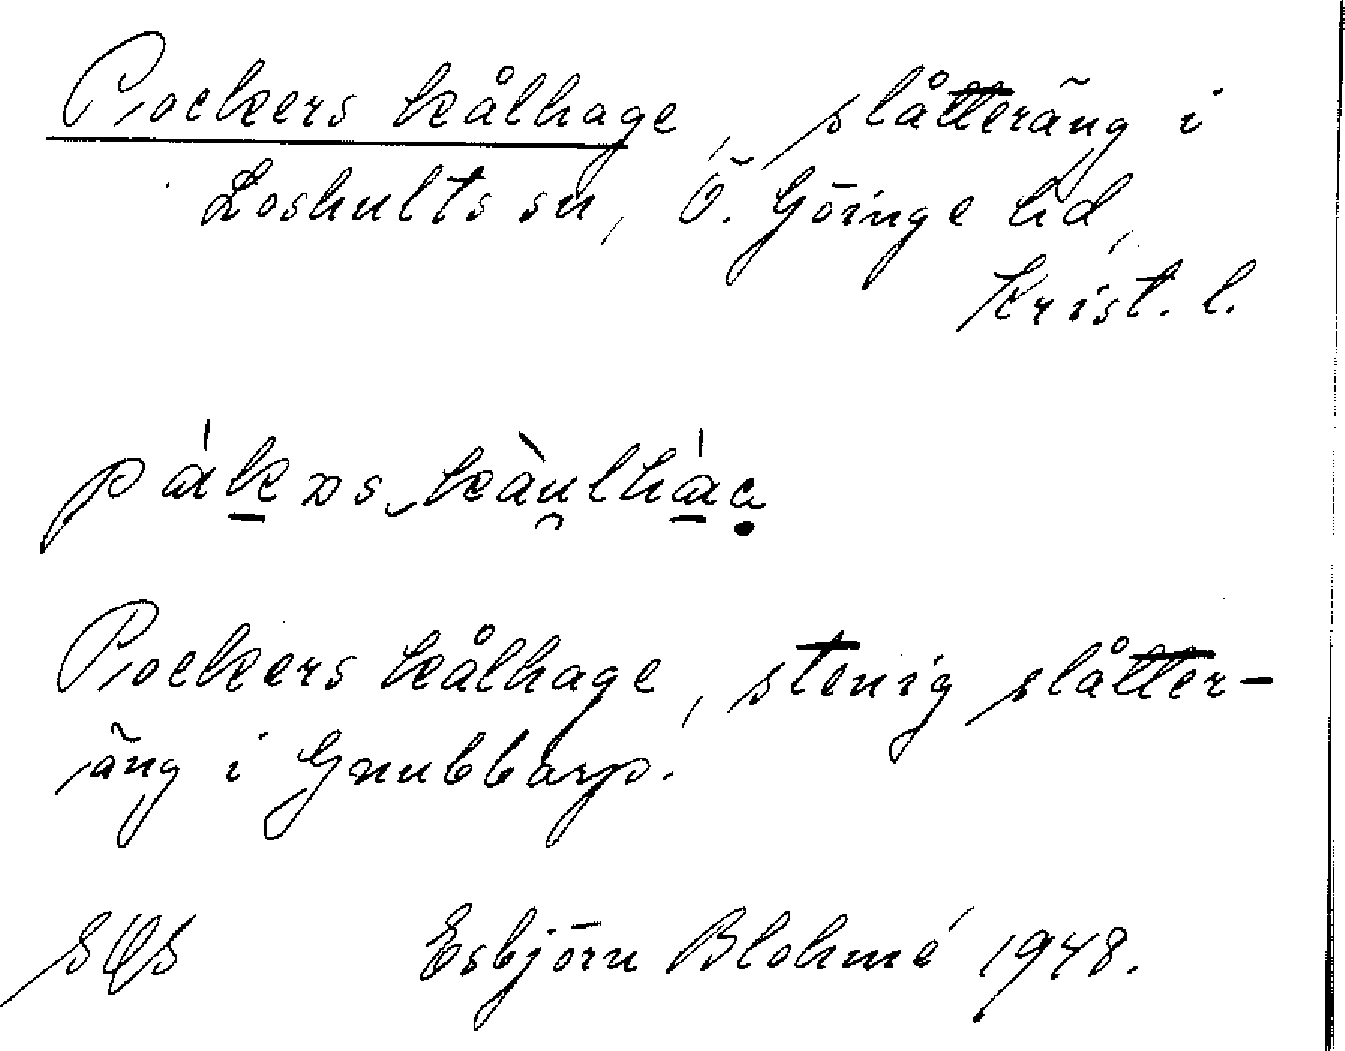 Pockers kålhage, slåtteräng i
Loshults sn, Ö. Göinge hd,
Krist. l.
Pockers kålhage, stenig slåtter-
äng i Gnubbarp.
Esbjörn Blohmé 1948.